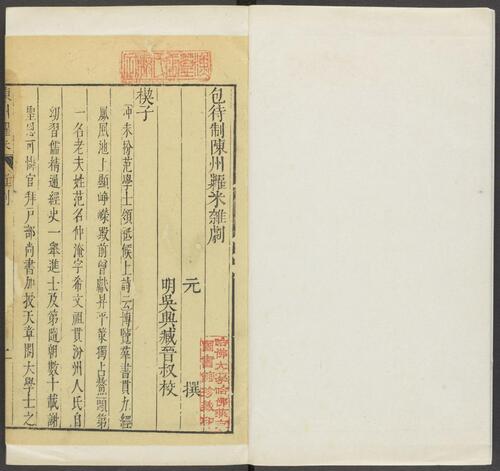 包待制陳州糶米雜劇
元 撰
明吳興臧晉叔校
楔子
冲末扮范學士領祗候上詩云博覽羣書貫九經
鳳凰池上顯崢嶸殿前曾獻昇平策獨占鰲頭第
一名老夫姓范名仲淹字希文祖貫汾州人氏自
幼習儒精通經史一舉進士及第隨朝數十載謝
聖恩可憐官拜戶部尚書加授天章閣大學士之
陳州糶米
雜劇
一